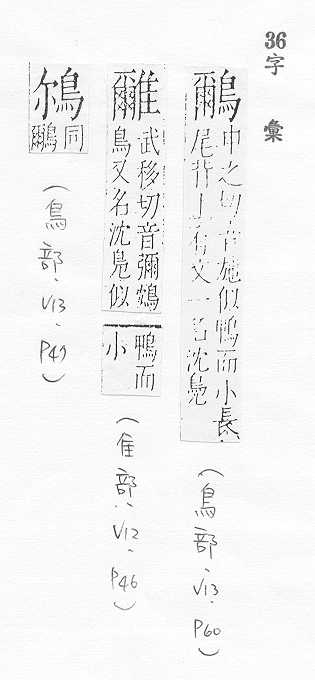 36字 彙
鸍
申之切音施似鴨而小長
尾背上有文一名沈鳧
(鳥部.V13.P60)
武移切音彌鶴
鳥又名沈鳧似
鴨而
小
(隹部.V12.P46)
同
鸍
(鳥部.V13.P49)